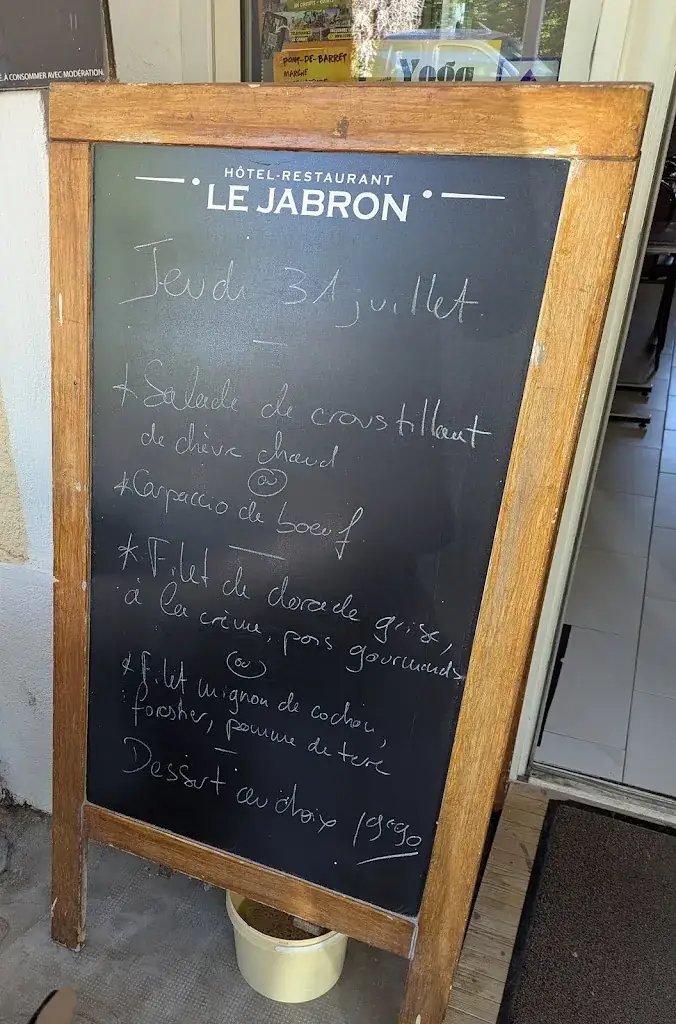 É A CONSOMMER AVEC MODÉRATION.
PONT-DE-BARRET
MARCHÉ
Yoga
HÔTEL-RESTAURANT
LE JABRON
Jeudi 31 juillet
* Salade de croustillant
de chèvre chaud
ou
* Carpaccio de boeuf
* Filet de dorade grise,
à la crème, pois gourmands
ou
* Filet mignon de cochon,
forestier, pomme de terre
Dessert au choix 19€90